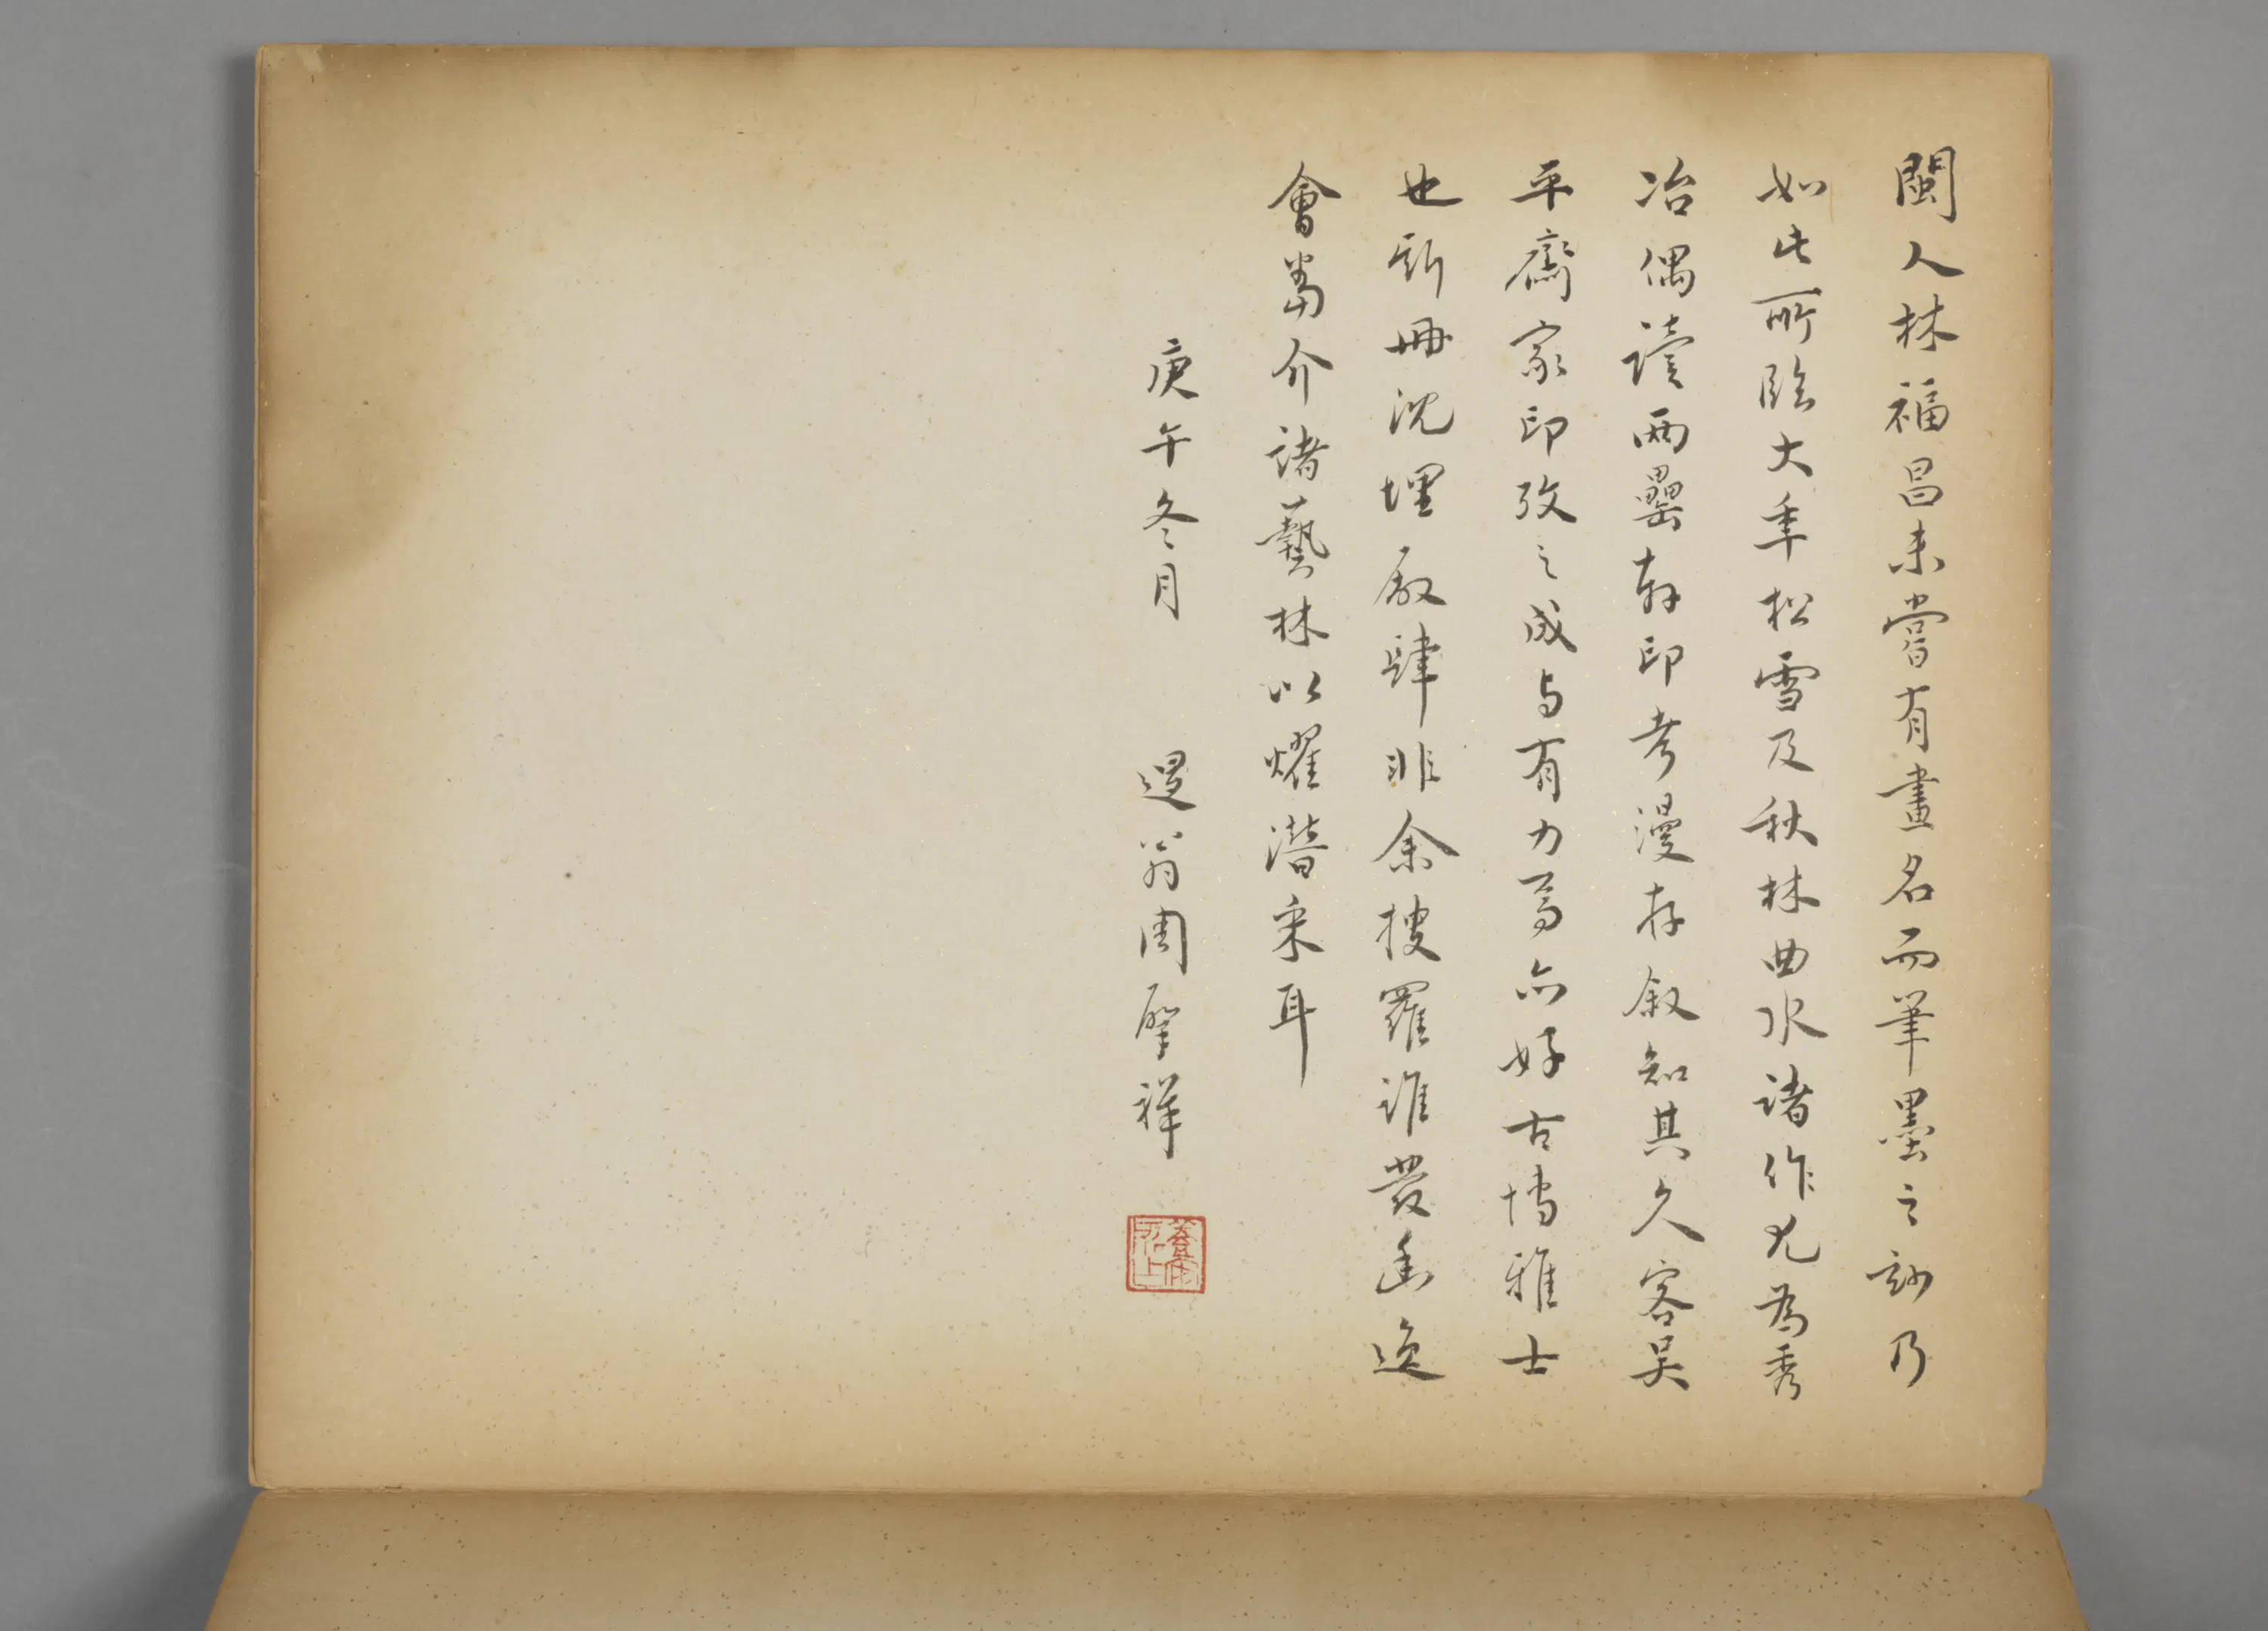 閩人林福昌未嘗有畫名而筆墨之妙乃
如此所臨大年松雪及秋林曲水諸作尤為秀
冶偶讀兩罍軒印考漫存叙知其久客吳
平齋家印攷之成与有力焉亦好古博雅士
也斯冊沈埋廠肆非余搜羅誰發幽逸
會當介諸藝林以耀潛采耳
庚午冬月 退翁周肇祥